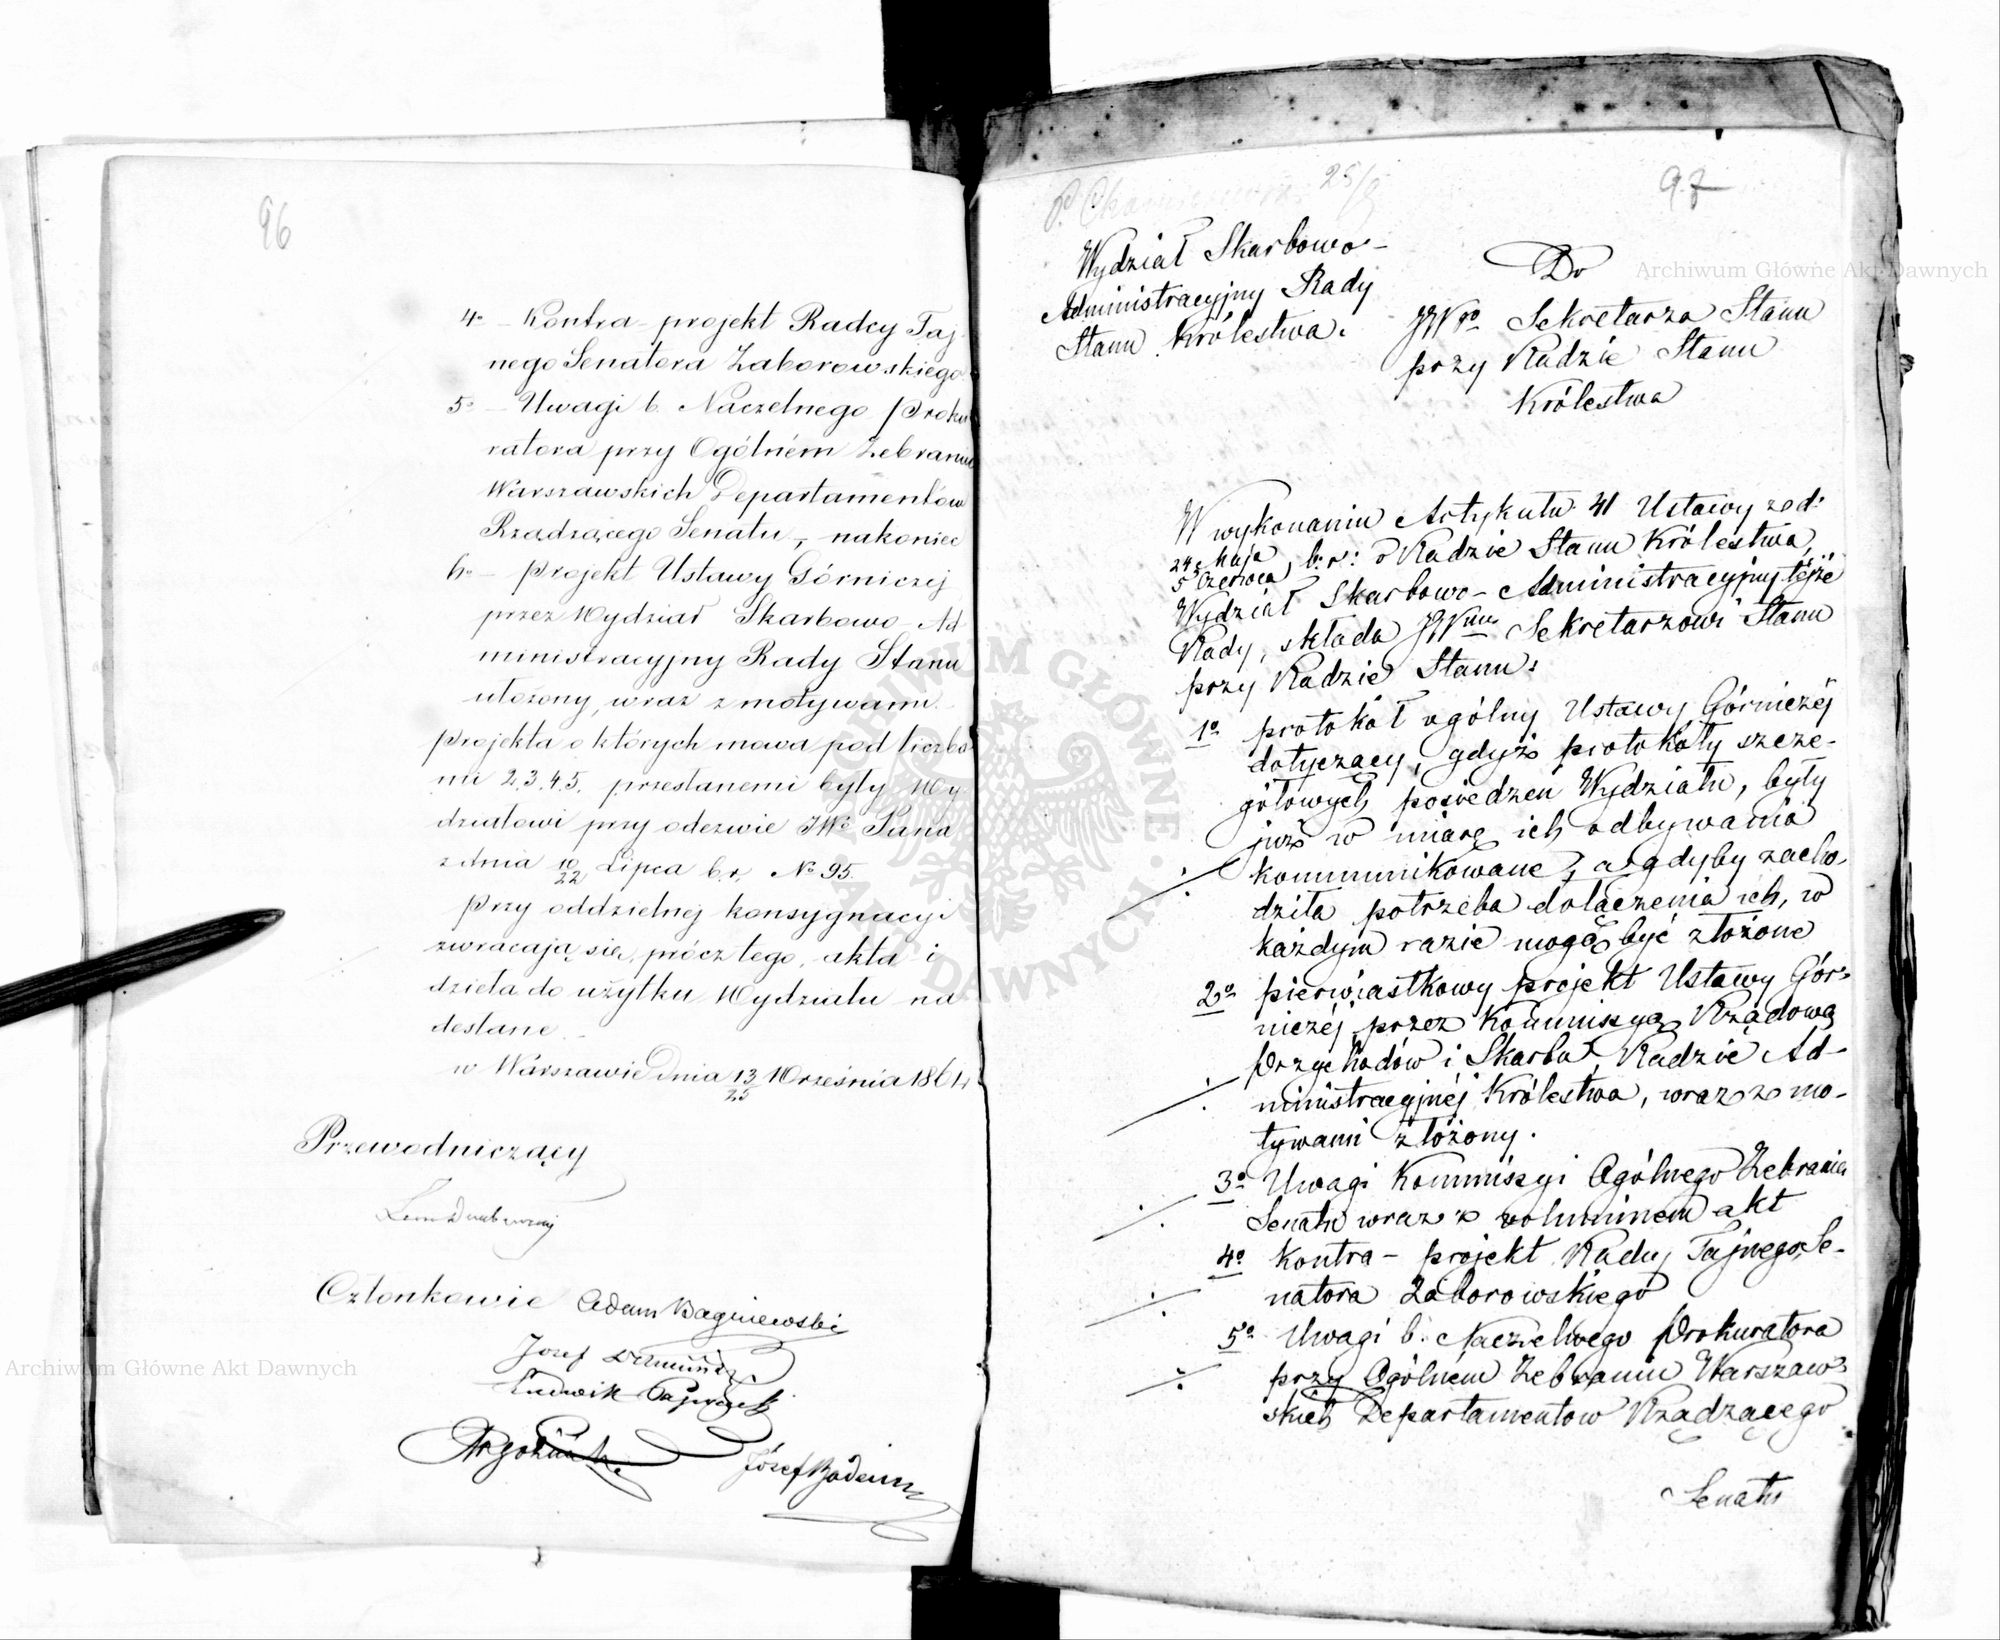 96
4º – Kontra-projekt Radcy Taj
nego Senatora Zaborowskiego
5º – Uwagi b. Naczelnego Proku
ratora przy Ogólném Zebraniu
Warszawskich Departamentów
Rządzącego Senatu, – nakoniec
6º – Projekt Ustawy Górniczej
przez Wydział Skarbowo-Ad
ministracyjny Rady Stanu
ułożony, wraz z motywami.
Projekta o których mowa pod liczba
mi 2.3.4.5. przesłanemi były Wy
działowi przy odezwie JWº Pana
z dnia 10/22 Lipca b.r. Nº 95.
Przy oddzielnej konsygnacyi
zwracają się, prócz tego, akta i
dzieła do użytku Wydziału na
desłane.
w Warszawie Dnia 13/25 Września 1864
Przewodniczący
Członkowie Adam Bagniewski
Józef
Ludwik
Józef
25/9
97
Wydział Skarbowo-
Administracyjny Rady
Stanu Królestwa.
Do
JWgo Sekretarza Stanu
przy Radzie Stanu
Królestwa
W wykonaniu Artykułu 41 Ustawy z d:
24 Maja/5 Czerwca b: r: o Radzie Stanu Królestwa,
Wydział Skarbowo-Administracyjny téjże
Rady, składa JWmu Sekretarzowi Stanu
przy Radzie Stanu:
1º protokół ogólny Ustawy Górniczéj
dotyczący, gdyż protokoły szcze-
gółowych posiedzeń Wydziału, były
już w miarę ich odbywania
kommunikowane, a gdyby zacho-
dziła potrzeba dołączenia ich, w
każdym razie mogą być złożone
2º pierwiastkowy projekt Ustawy Gór-
niczéj przez Kommissyą Rządową
Przychodów i Skarbu, Radzie Ad-
ministracyjnéj Królestwa, wraz z mo-
tywami złożony.
3º Uwagi Kommissyi Ogólnego Zebrania
Senatu wraz z voluminem akt
4º Kontra-projekt Radcy Tajnego, Se-
natora Zaborowskiego
5º Uwagi b. Naczelnego Prokuratora
przy Ogólném Zebraniu Warszaw-
skich Departamentów Rządzącego
Senatu
Archiwum Główne Akt Dawnych
Archiwum Główne Akt Dawnych
ARCHIWUM GŁÓWNE AKT DAWNYCH